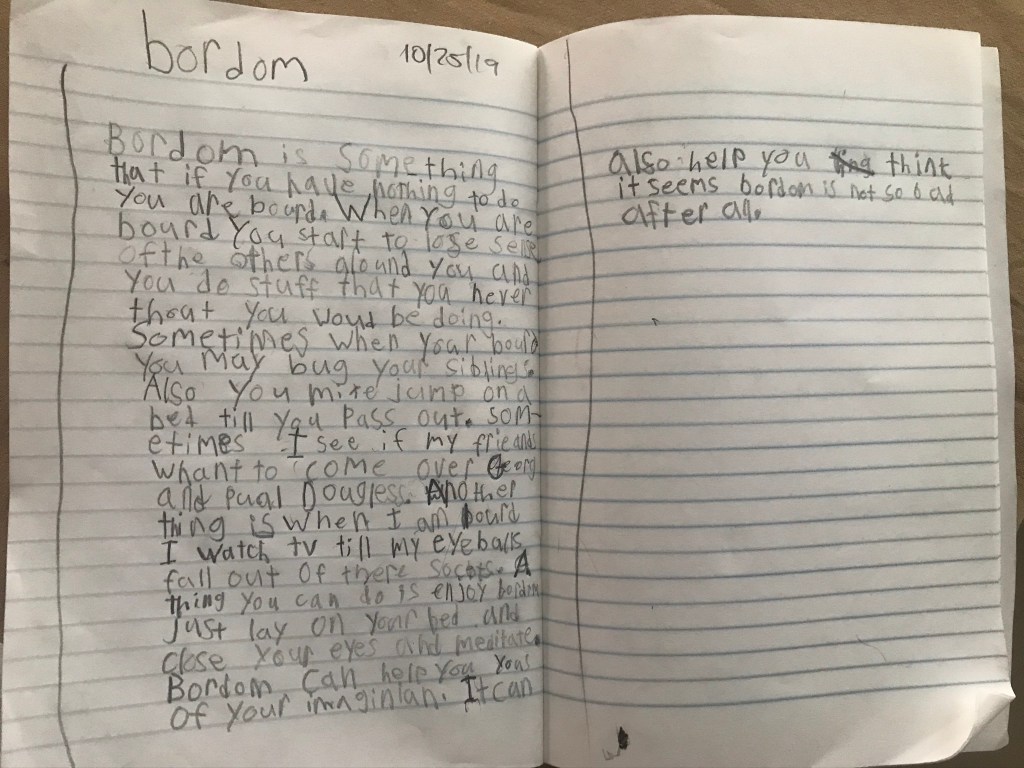 bordom
10/25/19
Bordom is something
that if you have nothing to do
you are bourd. When you are
bourd you start to lose sense
of the others around you and
you do stuff that you never
thoat you woud be doing.
Sometimes when your bourd
you may bug your siblings.
Also you mite jump on a
bed till you pass out. som-
etimes I see if my frieands
whant to come over Georg
and pual Dougless. Another
thing is when I am bourd
I watch tv till my eyeballs
fall out of there socets. A
thing you can do is enjoy bordom
Just lay on your bed and
close your eyes and meditate.
Bordom can help you yous
of your imnaginian. It can
also help you think
it seems bordom is not so bad
after all.